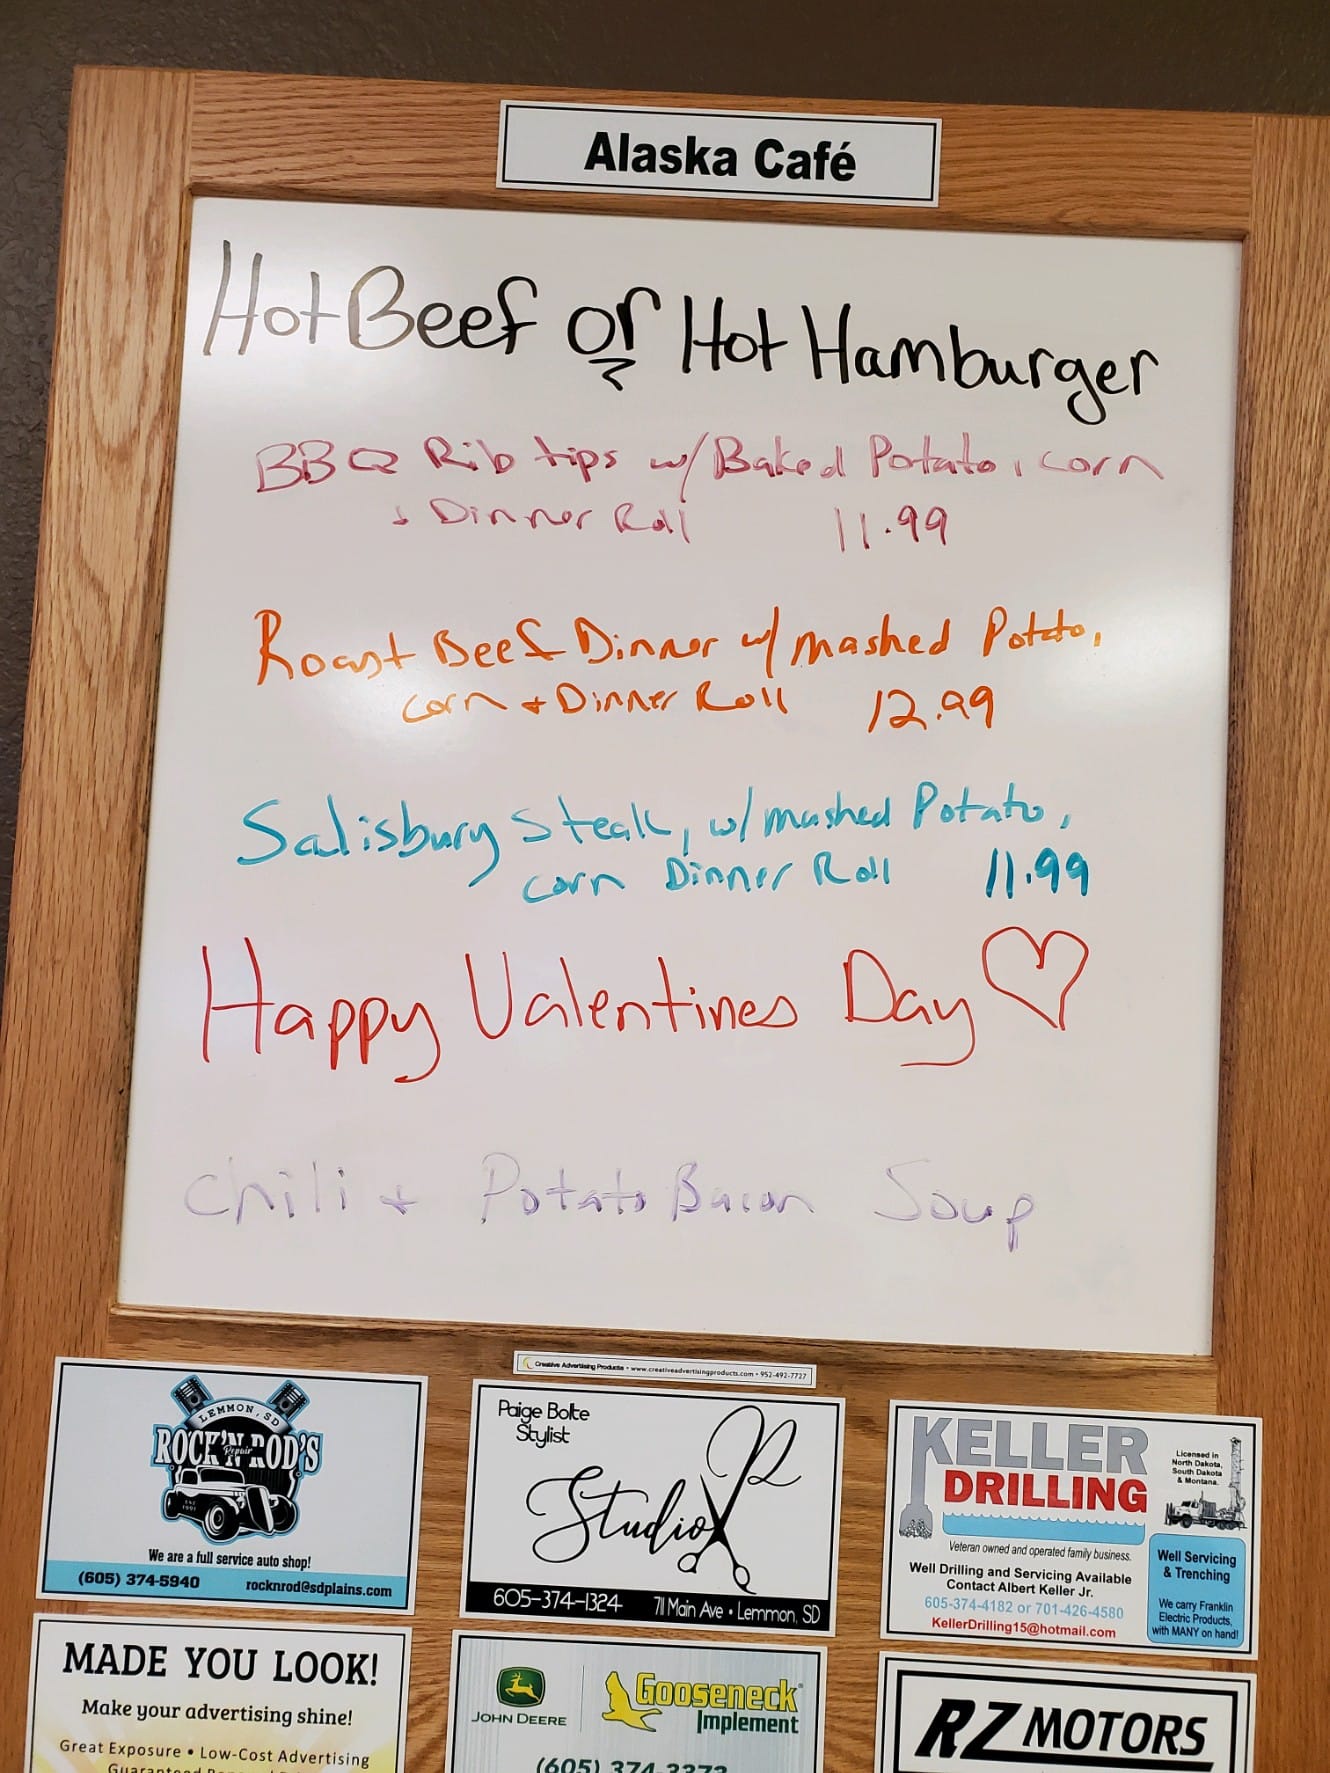 Alaska Café
Hot Beef or Hot Hamburger
BBQ Rib tips w/ Baked Potato, corn
+ Dinner Roll 11.99
Roast Beef Dinner w/ mashed Potato,
corn + Dinner Roll 12.99
Salisbury Steak, w/ mashed Potato,
corn Dinner Roll 11.99
Happy Valentines Day
Chili + Potato Bacon Soup
Creative Advertising Products • www.creativeadvertisingproducts.com • 952-492-7727
LEMMON, SD
ROCK'N ROD'S
Repair
EST
1991
We are a full service auto shop!
(605) 374-5940 rocknrod@sdplains.com
Paige Bolte
Stylist
Studio R
605-374-1324 711 Main Ave • Lemmon, SD
KELLER
DRILLING
Licensed in
North Dakota,
South Dakota
& Montana.
Veteran owned and operated family business.
Well Drilling and Servicing Available
Contact Albert Keller Jr.
605-374-4182 or 701-426-4580
KellerDrilling15@hotmail.com
Well Servicing
& Trenching
We carry Franklin
Electric Products,
with MANY on hand!
MADE YOU LOOK!
Make your advertising shine!
Great Exposure • Low-Cost Advertising
Guaranteed
JOHN DEERE
Gooseneck
Implement
(605) 374-3373
RZ MOTORS